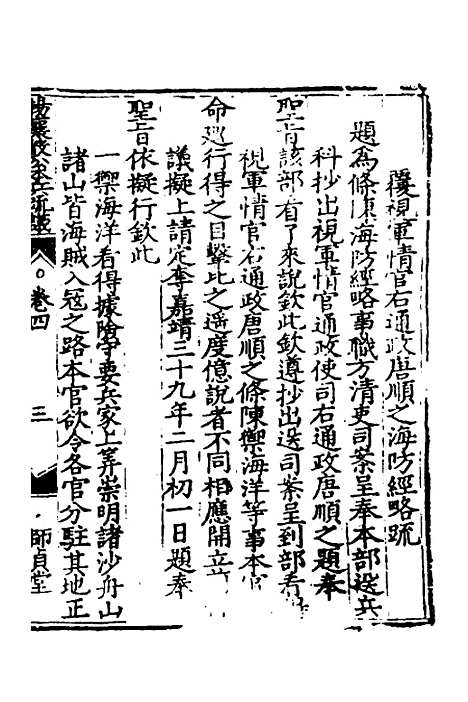 覆視軍情官右通政唐順之海防經略疏
題為條陳海防經略事職方清吏司案呈奉本部送兵
科抄出視軍情官通政使司右通政唐順之題奉
聖旨該部看了來說欽此欽遵抄出送司案呈到部看得
視軍情官右通政唐順之條陳禦海洋等事本官
命廵行得之目擊比之遥度億說者不同相應開立
議擬上請定奪嘉靖三十九年二月初一日題奉
聖旨依擬行欽此
一禦海洋看得據險守要兵家上筭崇明諸沙舟山
諸山皆海賊入寇之路本官欲令各官分駐其地正
楊襄毅公本兵疏議 卷四 三 師貞堂